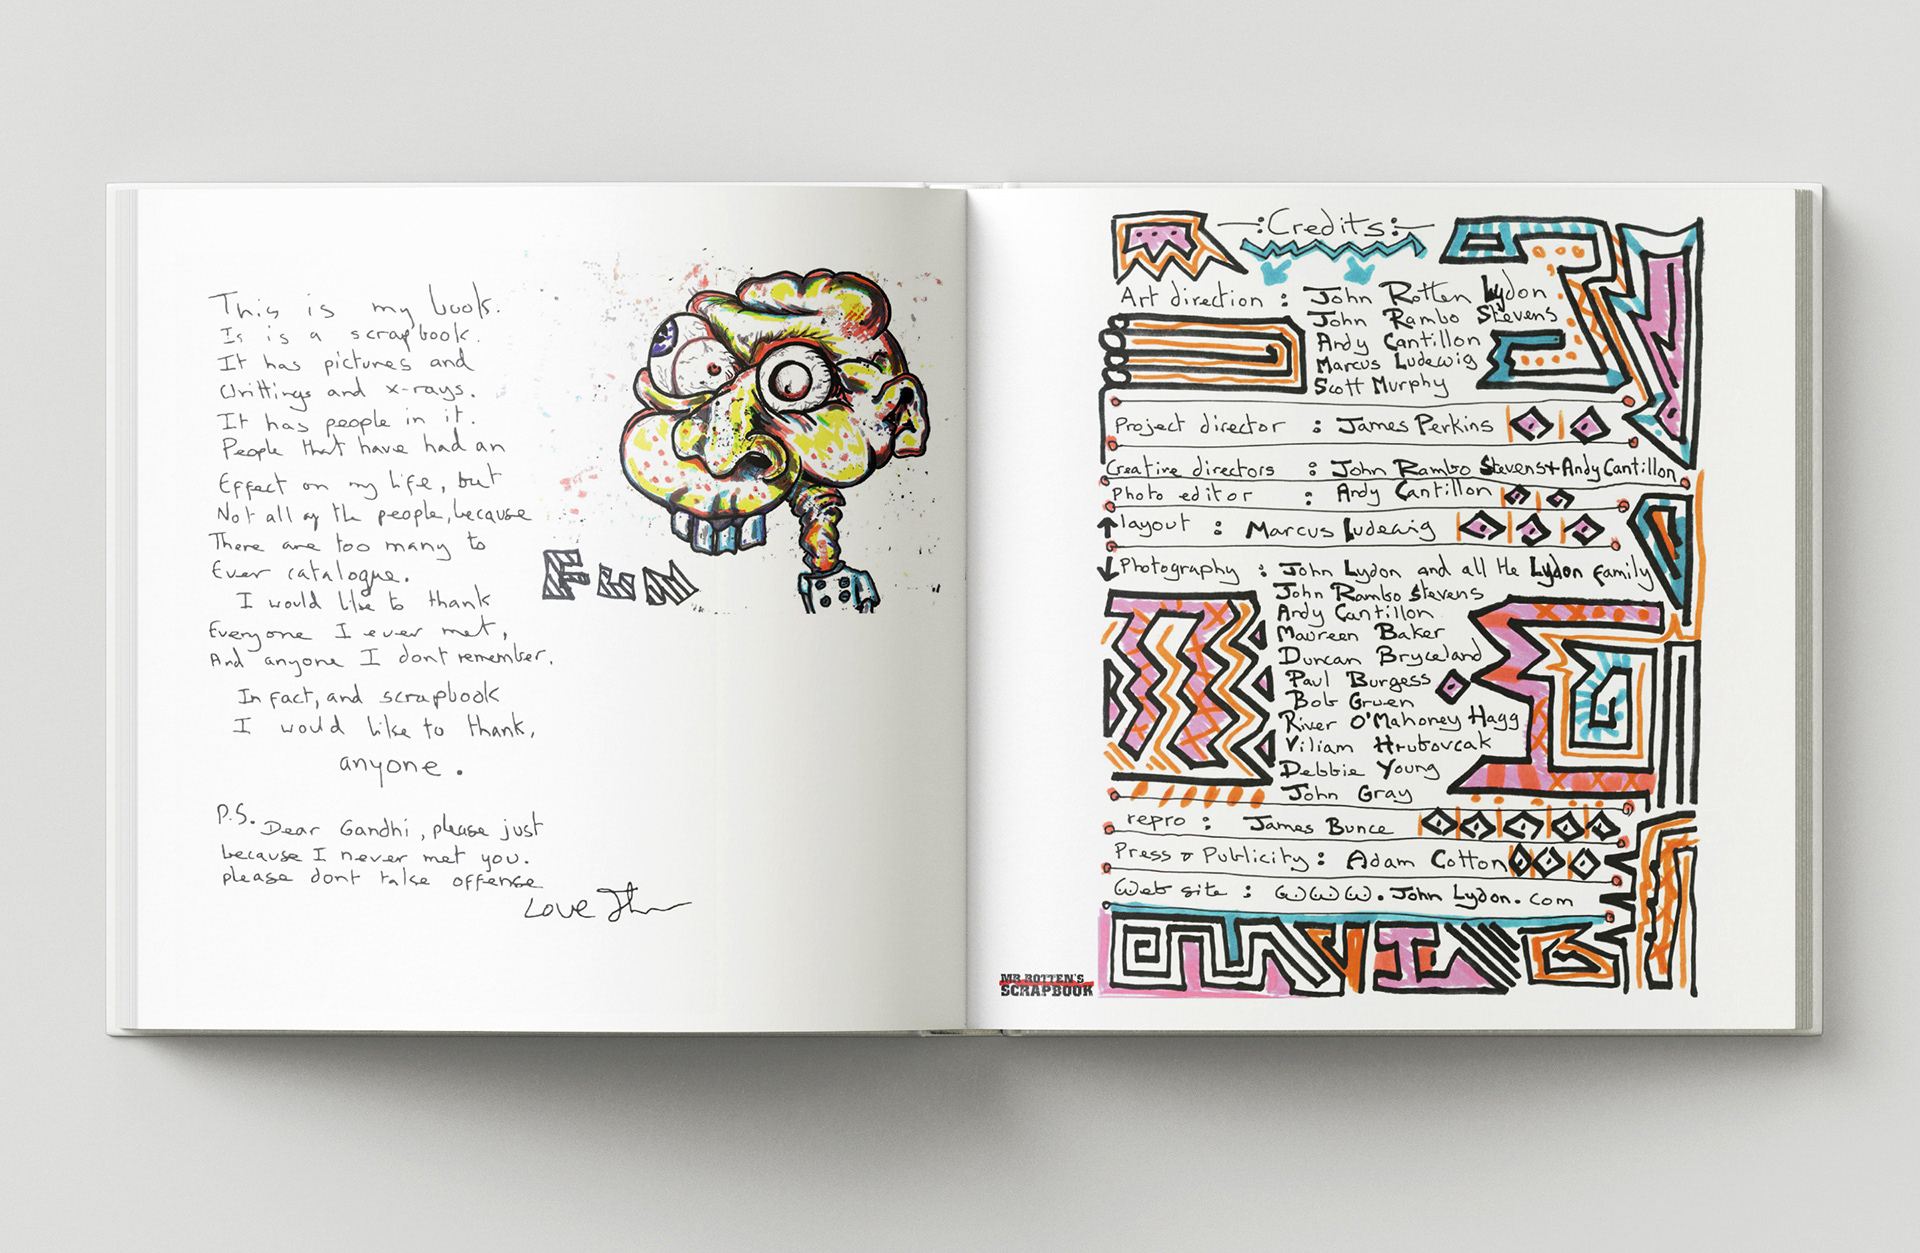 This is my book.
Is is a scrapbook.
It has pictures and
Writtings and x-rays.
It has people in it.
People that have had an
Effect on my life, but
Not all of the people, because
There are too many to
Ever catalogue.
I would like to thank
Everyone I ever met,
And anyone I dont remember.
In fact, and scrapbook
I would like to thank,
anyone.
P.S. Dear Gandhi, please just
because I never met you.
please dont take offense
Love John
FUN
Credits
Art direction : John Rotten Lydon
John Rambo Stevens
Andy Cantillon
Marcus Ludewig
Scott Murphy
Project director : James Perkins
Creative directors : John Rambo Stevens + Andy Cantillon
Photo editor : Andy Cantillon
layout : Marcus Ludewig
Photography : John Lydon and all the Lydon family
John Rambo Stevens
Andy Cantillon
Maureen Baker
Duncan Bryceland
Paul Burgess
Bob Gruen
River O'Mahoney Hagg
Viliam Hrubovcak
Debbie Young
John Gray
repro : James Bunce
Press & Publicity : Adam Cotton
Web site : www.JohnLydon.com
MR ROTTEN'S
SCRAPBOOK